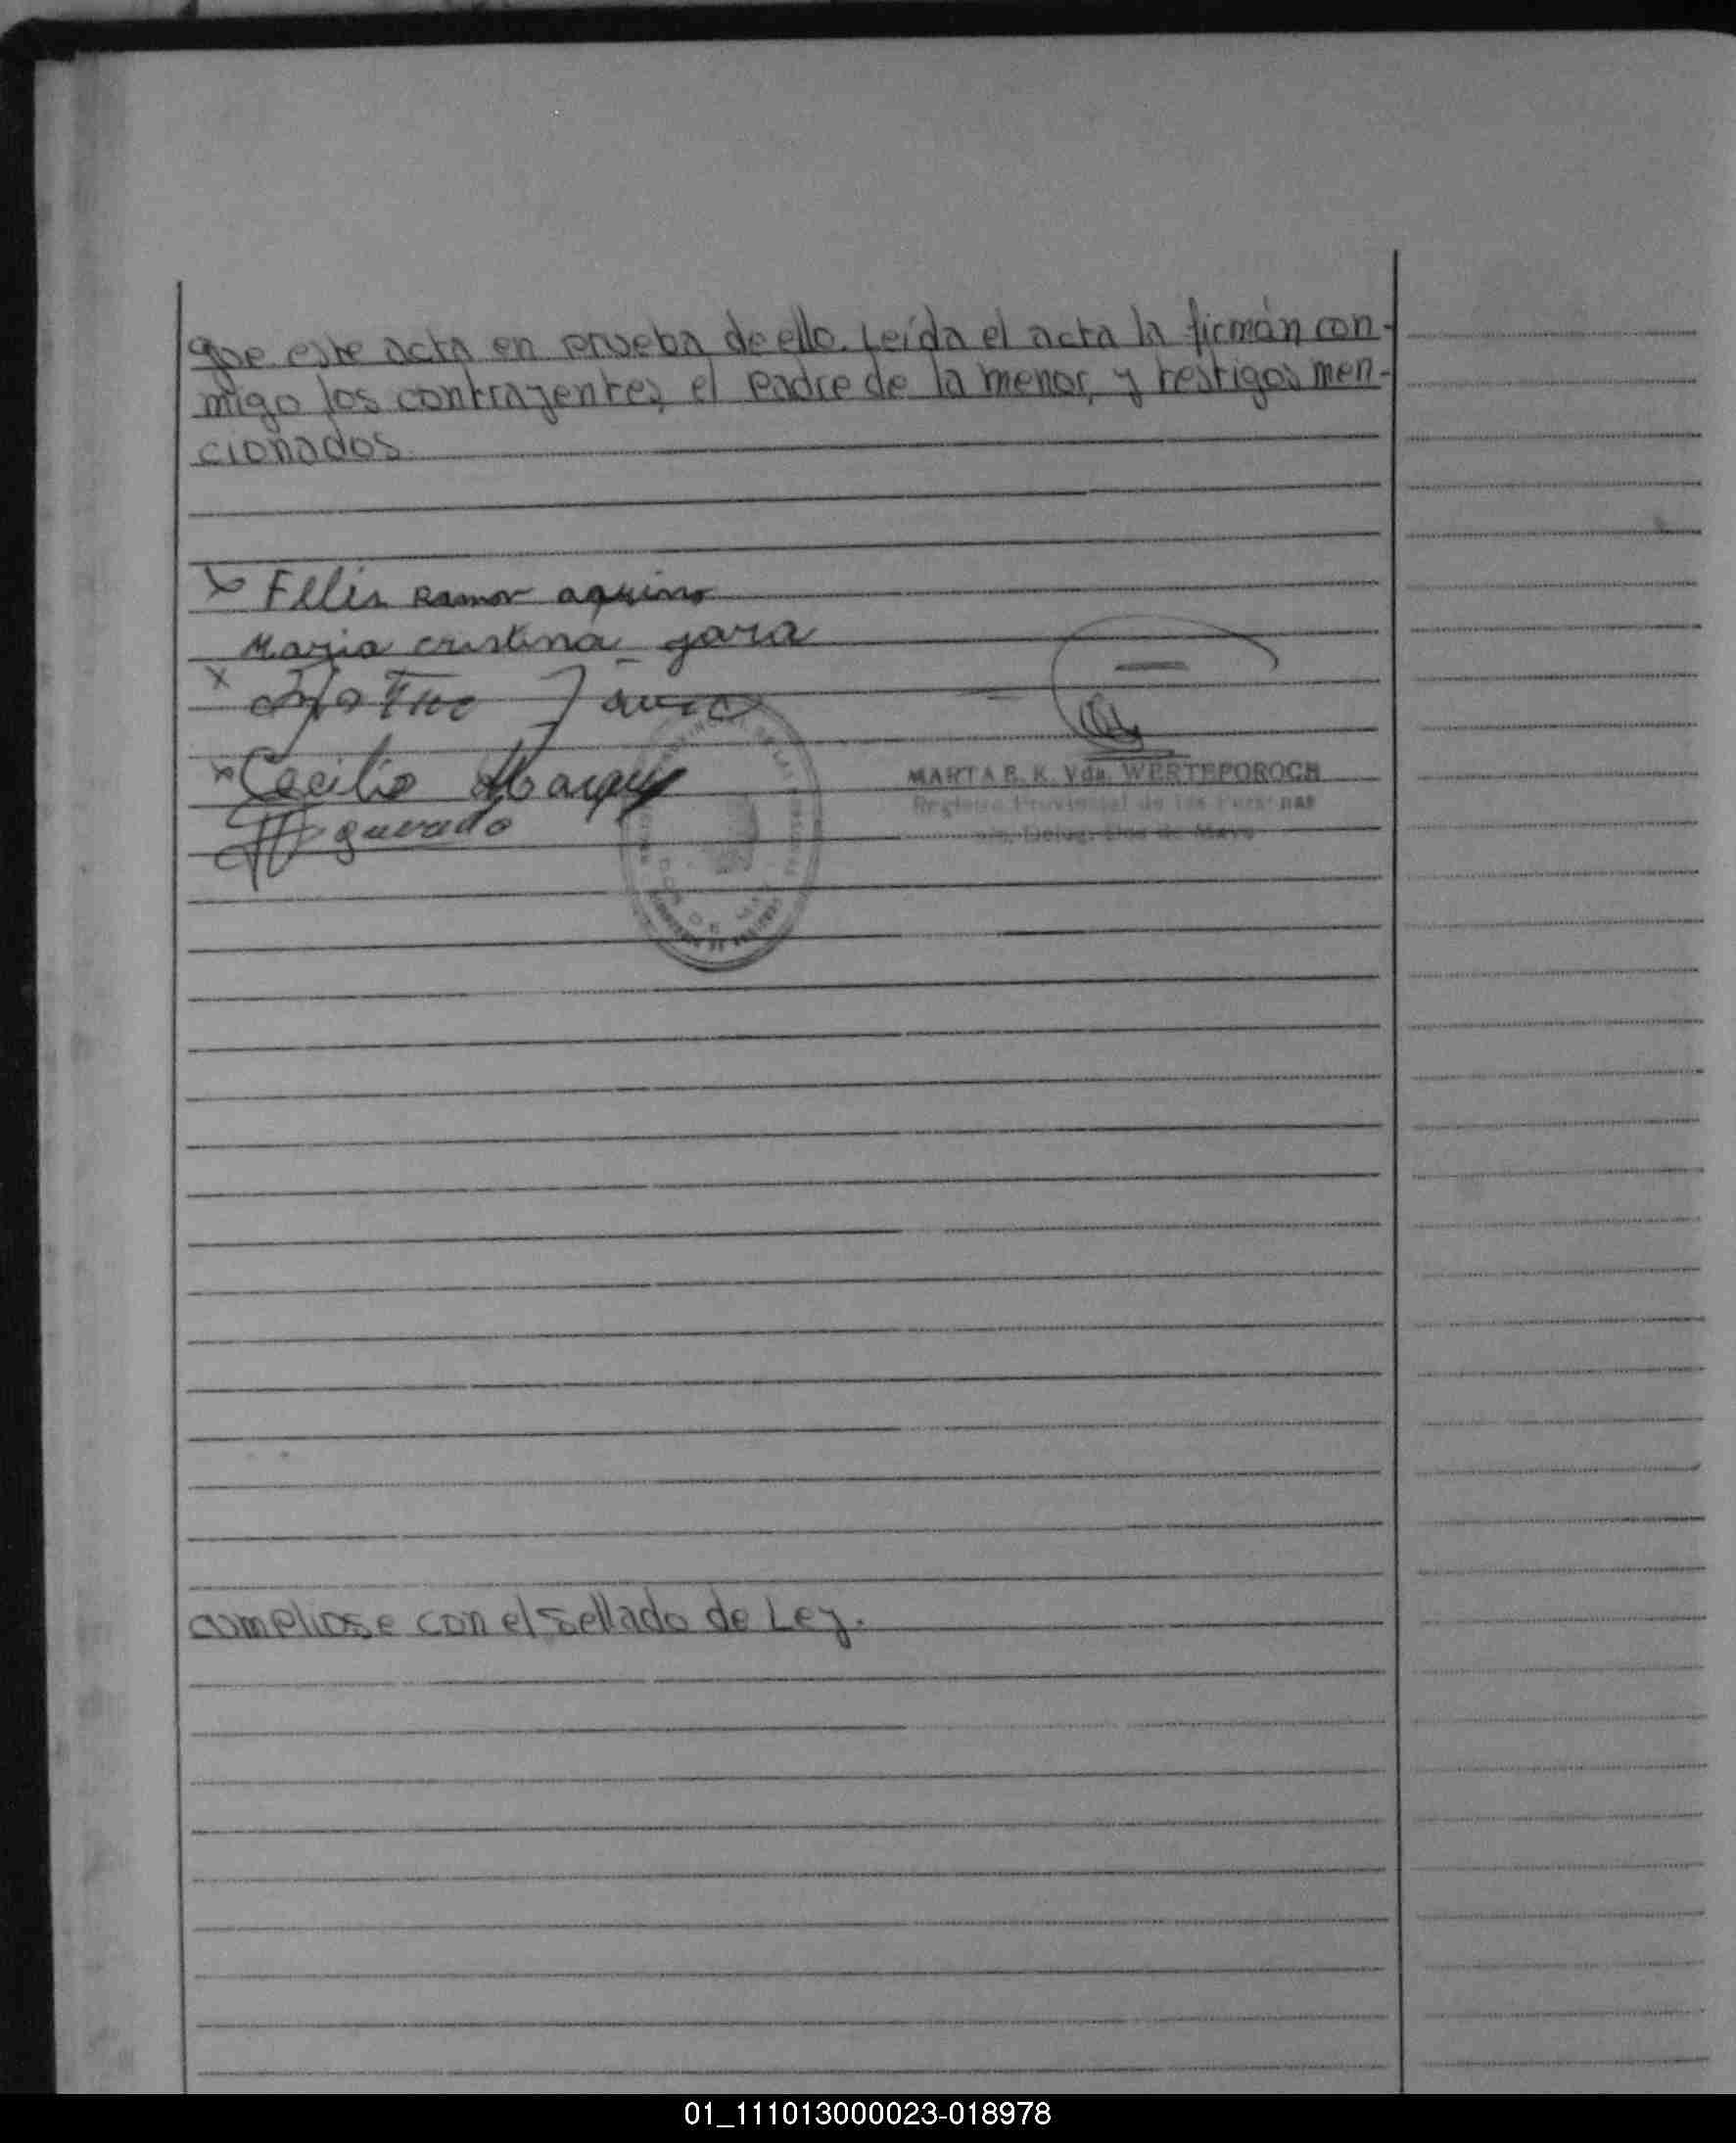 que este acta en prueba de ello. Leída el acta la firmán con-
migo los contrayentes, el Padre de la menor, y testigos men-
cionados
x Felis Ramor aquino
Maria cristina jara
x
x Cecilio Marquez
MARTA E. K. Vda. WERTEPOROCH
Registro Provincial de las Personas
Deleg. Dos de Mayo
cumpliose con el sellado de Ley.
01_111013000023-018978